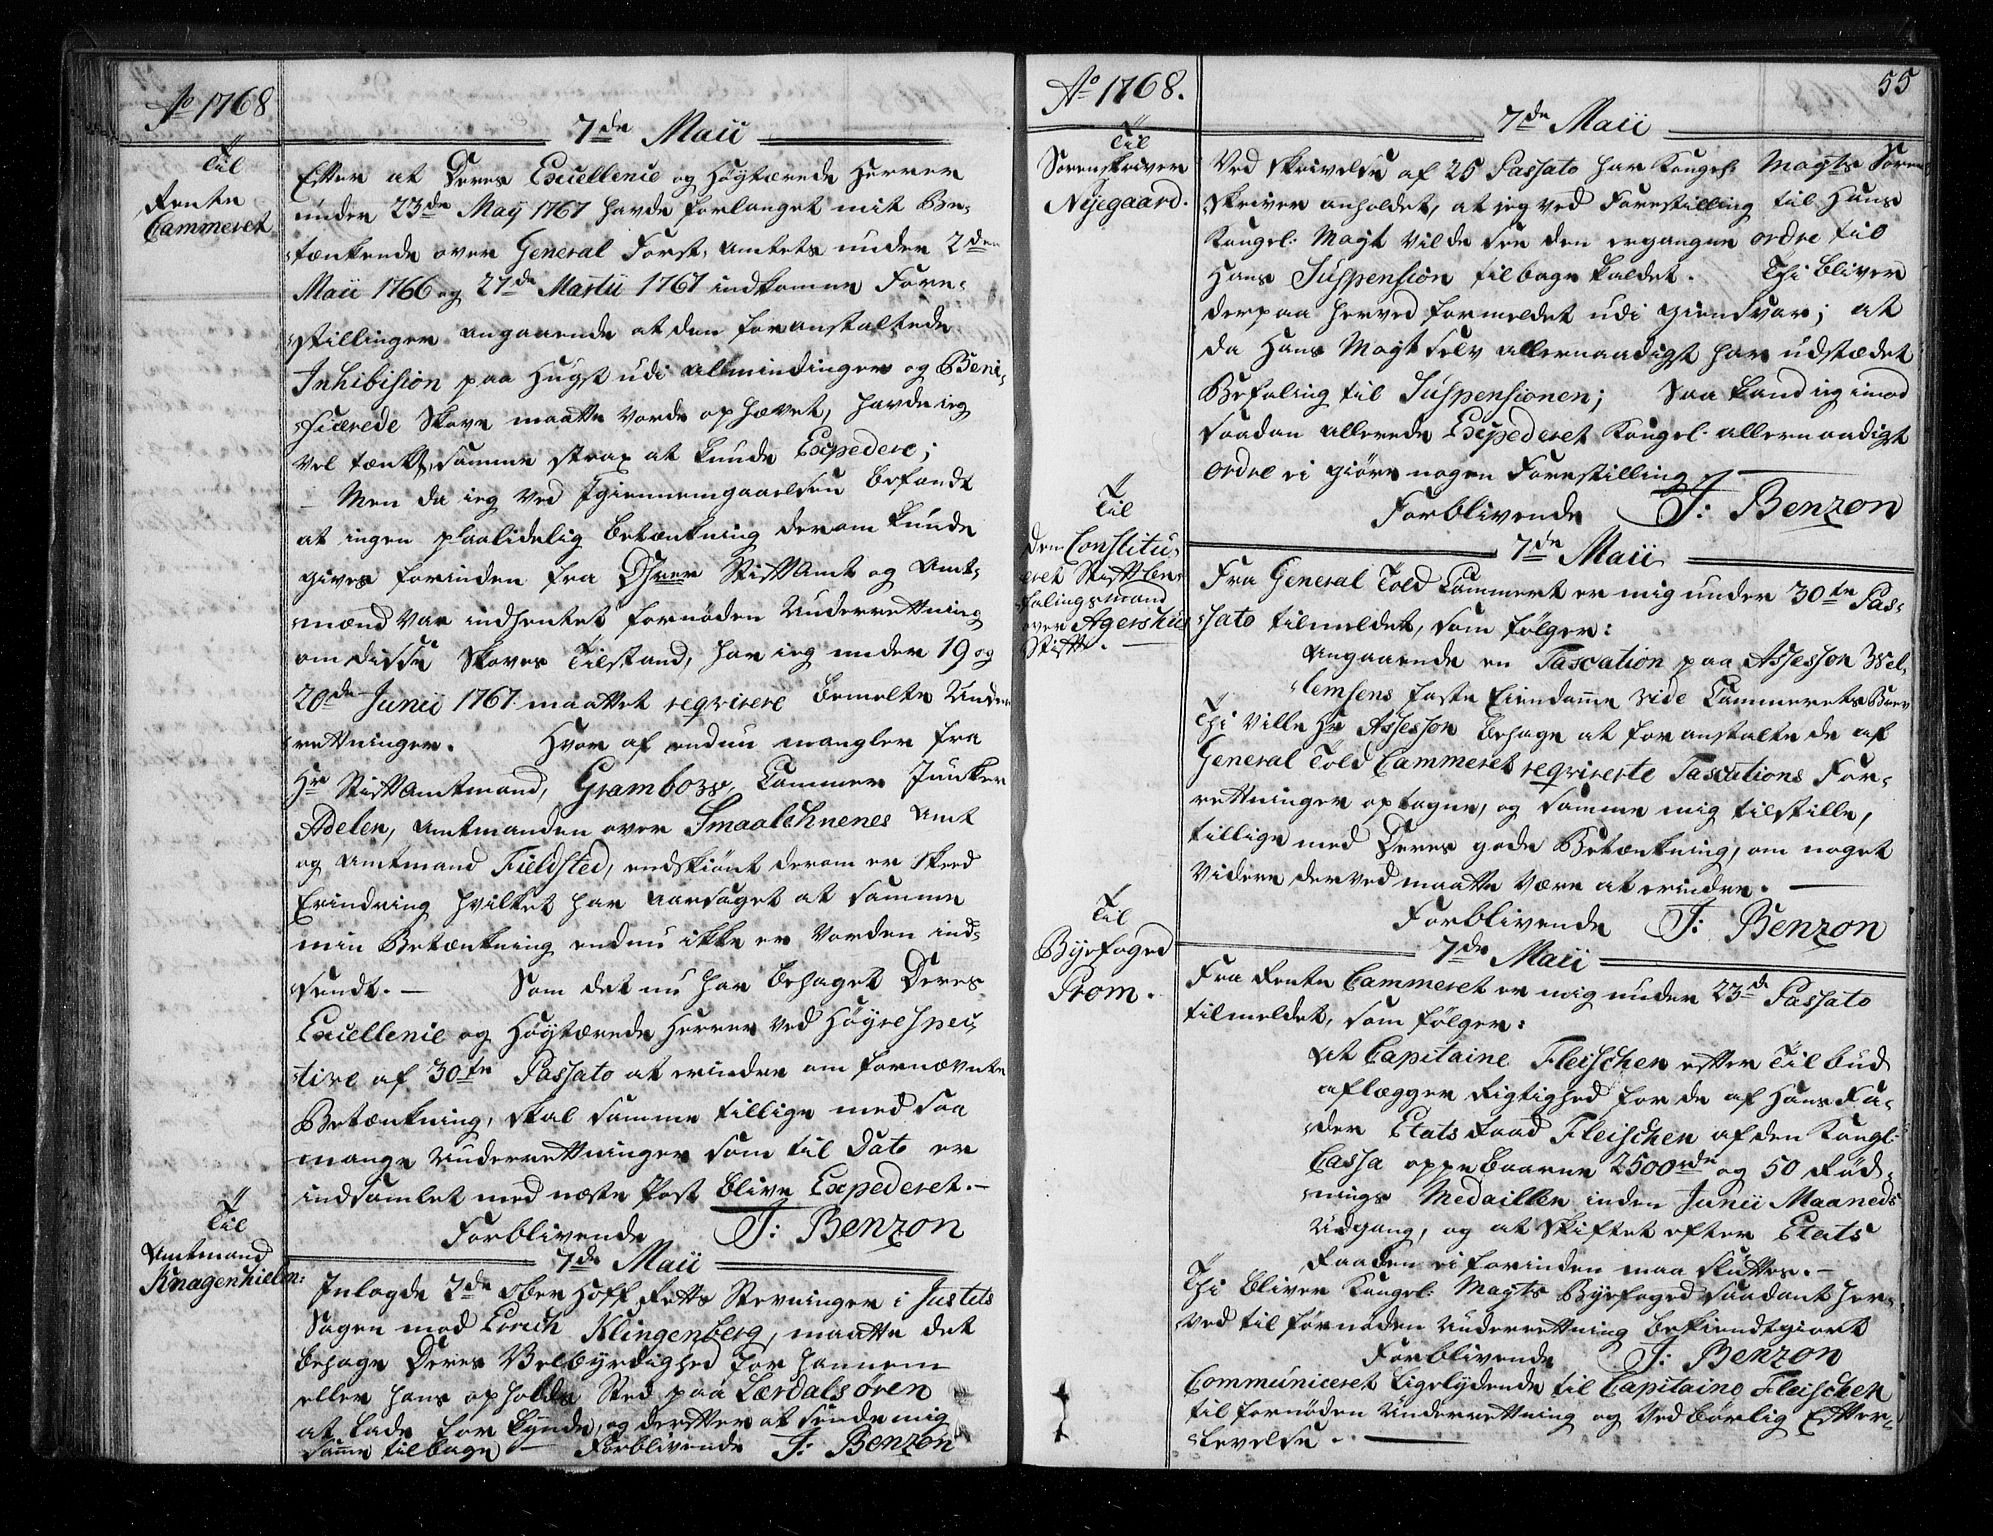 Ao 1768
7de Maii
Til
Rente
Cammeret
Efter at Deres Excellence og Høytærede Herrer
under 23de May 1767 havde forlanget mit Be-
tænkende over General Forst-Amtets under 2den
Maii 1766 og 27de Martii 1767 indkomne Fore-
stillinger angaaende at den foranstaltede
Inhibision paa Hugst udi Allmindinger og Beni-
ficerede Skove maatte vorde ophævet, havde ieg
vel tænkt, samme strax at kunde Expedere;
Men da ieg ved Igiennemgaaelsen befandt
at ingen paalidelig betænkning derom kunde
gives forinden fra Dhrer Stiftamt og Amt-
mænd var indhentet fornøden Underrettning
om disse Skoves Tilstand, har ieg under 19 og
20de Junii 1767 maattet reqvirere bemelte Under
rettninger. Hvor af endnu mangler fra
Hr Stiftamtmand, Grambow, Cammer Juncker
Adelen, Amtmanden over Smaalehnenes Amt
og Amtmand Fieldsted, endskiønt derom er skeed
Erindring hvilket har aarsaget at samme
min Betænkning endnu ikke er vorden ind-
sendt. Som det nu har behaget Deres
Excellence og Høytærede Herrer ved Høyrespec-
tive af 30te Passato at erindre om fornævnte
Betænkning, skal samme tillige med saa
mange Underrettninger som til Dato er
indsamlet med næste Post blive Expederet.
Forblivende J: Benzon
7de Maii
Til
Amtmand
Knagenhielm:
Inlagde 2de Ober Hoff Retts Stevninger i Justits
Sagen mod Erich Klingenberg, maatte det
behage Deres Velbyrdighed for hannem
eller hans opholds Sted paa Lærdalsøren
at lade forkynde, og derefter at sende mig
samme tilbage Forblivende J: Benzon
Ao 1768.
55
7de Maii
Til
Sorenskriver
Nyegaard.
Ved Skrivelse af 25 Passato har Kongel: Mayts Soren
skriver anholdet, at ieg ved Forestilling til Hans
Kongel: Mayt vilde see den ergangne ordre til
Hans Suspension tilbage kaldet. Thi bliver
derpaa herved formeldet udi giensvar; at
da Hans Mayt selv allernaadigst har udstædet
Befaling til Suspensionen; Saa kand ieg imod
saadan allerede Expederet Kongel. allernaadigst
ordre ei giøre nogen Forestilling
Forblivende J: Benzon
7de Maii
Til
den Constitu-
eret Stiftbe-
falingsmand
over Agershus
Stift.
Fra General Told Cammeret er mig under 30te Pas-
sato tilmeldet, som følger:
Angaaende en Taxation paa Assessor Wel-
lemsens faste Eiendomme vide Cammerets Brev
Thi ville Hr Assessor behage at foranstalte de af
General Told Cammeret reqvirerte Taxations For-
rettninger optagne, og samme mig tilstille,
tillige med Deres gode Betænkning, om noget
videre derved maatte være at erindre.
Forblivende J: Benzon
7de Maii
Til
Byefoged
Prom.
Fra Rente Cammeret er mig under 23d Passato
tilmeldet, som følger:
At Capitaine Fleischer efter Tilbud
aflægger Rigtighed for de af Hans Fa-
der Etats Raad Fleischer af den Kongl:
Cassa oppebaarne 2500rde og 50 Rød-
nings Medailler inden Junii Maaneds
Udgang, og at Skiftet efter Etats
Raaden ei forinden maa sluttes.
Thi bliver Kongel: Mayts Byefoged saadant her-
ved til fornøden Underrettning bekiendtgiort
Forblivende J: Benzon
Communiceret Ligelydende til Capitaine Fleischer
til fornøden Underrettning og Vedbørlig Efter-
levelse.